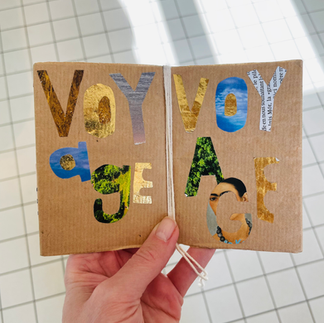 VOY
agE
VOY
A
GE